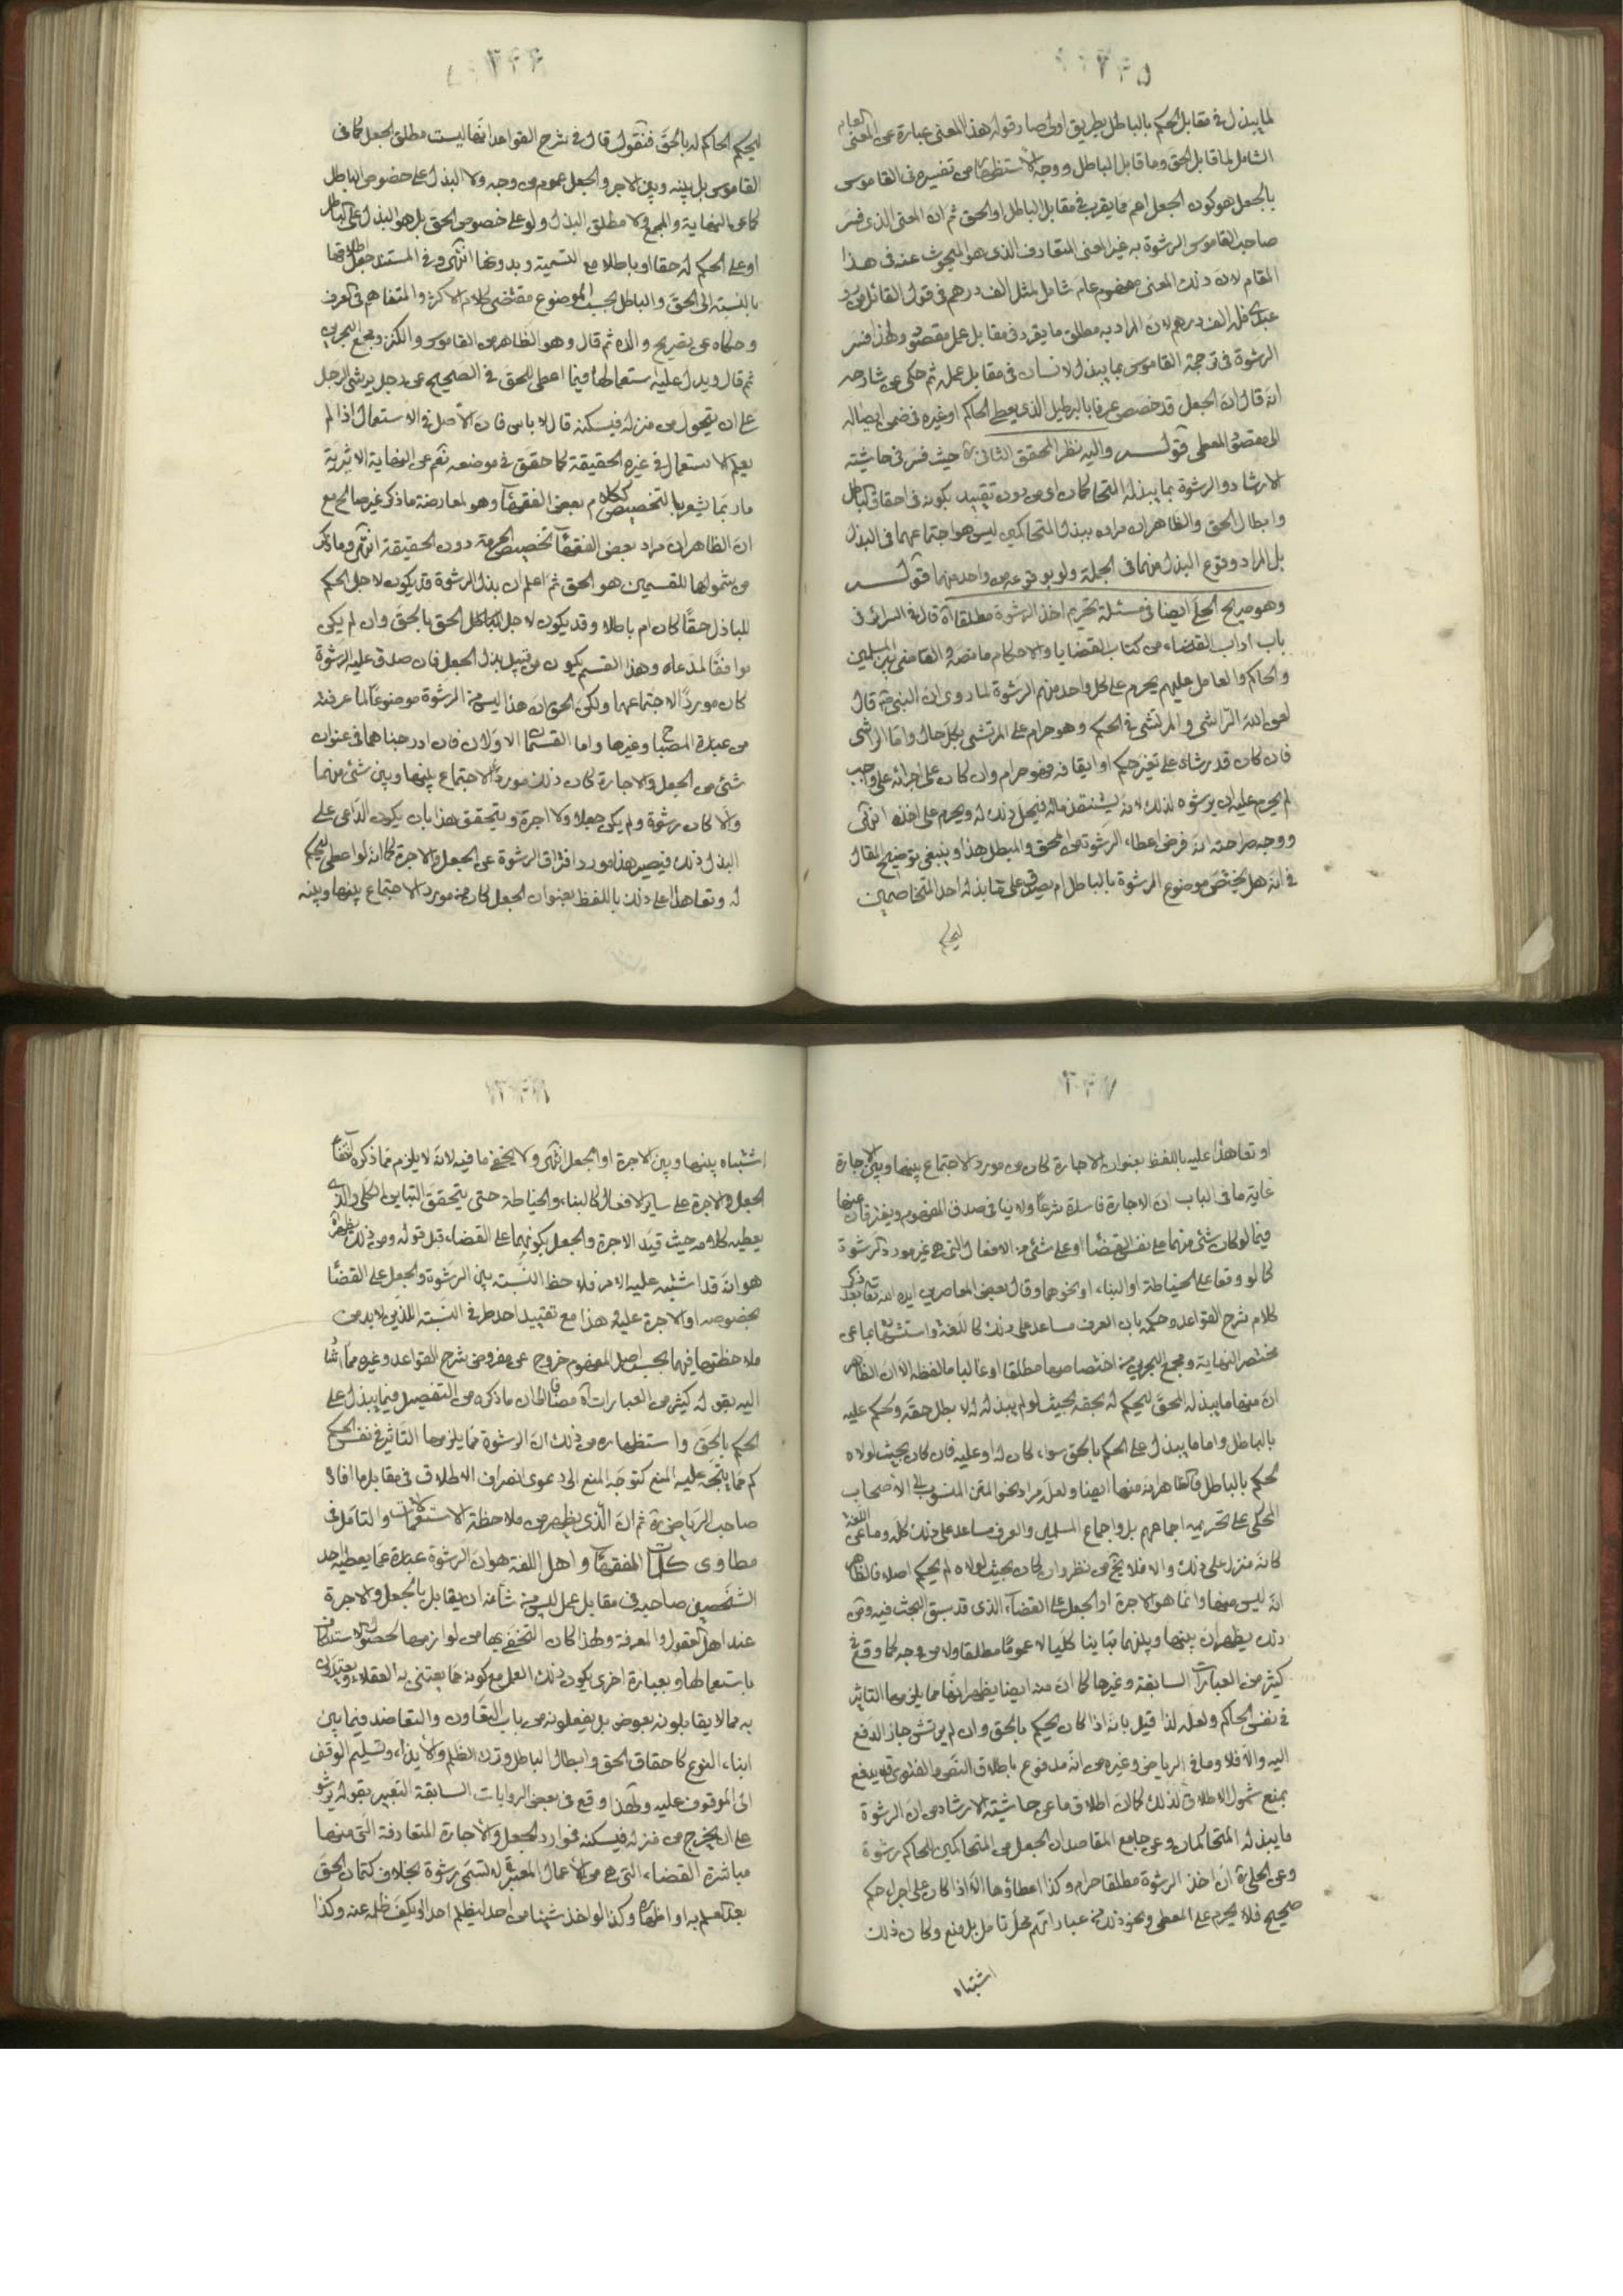 لما يبذل في مقابل الحكم بالباطل بطريق اولى صار قوله هذا المعنى عبارة عن المعنى العام
الشامل لما قابل الحق وما قابل الباطل ووجه الاستظهار من تفسيره في القاموس
بالجعل هو كون الجعل اعم مما يقرب في مقابل الباطل او الحق ثم ان المعنى الذي فسر
صاحب القاموس الرشوة به غير المعنى المتعارف الذي هو المبحوث عنه في هذا
المقام لان ذلك المعنى مفهوم عام شامل لمثل الف درهم في قول القائل من رد
عبدي فله الف درهم لان المراد به مطلق ما يقرر في مقابل عمل مقصود ولهذا فسر
الرشوة في ترجمة القاموس بما يبذل لانسان في مقابل عمله ثم حكى عن شارحه
انه قال ان الجعل قد خصص عرفا بالبرطيل الذي يعطى الحاكم او غيره في ضمن ايصاله
الى مقصود المعطي قوله واليه نظر المحقق الثاني ره حيث فسر في حاشيته
الارشاد الرشوة بما يبذله المتحاكمان اي من دون تقييد بكونه في احقاق الباطل
وابطال الحق والظاهر ان مراده ببذل المتحاكمين ليس هو اجتماعهما في البذل
بل المراد وقوع البذل منهما في الجملة ولو بوقوعه من واحد منهما قوله
وهو صريح الحلي ايضا في مسئلة تحريم اخذ الرشوة مطلقا اه قال في السرائر في
باب اداب القضاء من كتاب القضايا والاحكام ما نصه والقاضي بين المسلمين
والحاكم والعامل عليهم يحرم على كل واحد منهم الرشوة لما روى ان النبي ص قال
لعن الله الراشي والمرتشي في الحكم وهو حرام على المرتشي بكل حال واما الراشي
فان كان قد رشاه على تغيير حكم او ايقافه فهو حرام وان كان على اجرائه على واجبه
لم يحرم عليه ان يرشوه لذلك لانه يستنقذ ماله فيحل ذلك له ويحرم على اخذه انتهى
ووجه صراحته انه فرض اعطاء الرشوة من المحق والمبطل هذا وينبغي توضيح المقال
في انه هل يختص موضوع الرشوة بالباطل ام يصدق على ما بذله احد المتخاصمين
ليحكم
ليحكم الحاكم له بالحق فنقول قال في شرح القواعد انها ليست مطلق الجعل كما في
القاموس بل بينه وبين الاجر والجعل عموم من وجه ولا البذل على خصوص الباطل
كما عن النهاية والمجمع ولا مطلق البذل ولو على خصوص الحق بل هو البذل على الباطل
او على الحكم له حقا او باطلا مع التسمية وبدونها انتهى وفي المستند جعل اطلاقها
بالنسبة الى الحق والباطل بحسب الموضوع مقتضى كلام الاكثر والمتفاهم في العرف
وحكاه عن تصريح والده ثم قال وهو الظاهر من القاموس والكنز ومجمع البحرين
ثم قال ويدل عليه استعمالها فيما اعطى للحق في الصحيح عن رجل يرشي الرجل
على ان يتحول من منزله فيسكنه قال لا باس فان الاصل في الاستعمال اذا لم
يعلم الاستعمال في غيره الحقيقة كما حقق في موضعه نعم عن النهاية الاثيرية
ما ربما يشعر بالتخصيص ككلام بعض الفقهاء وهو لمعارضة ما ذكر غير صالح مع
ان الظاهر ان مراد بعض الفقهاء تخصيص الحرمة دون الحقيقة انتهى وما ذكر
من شمولها للقسمين هو الحق ثم اعلم ان بذل الرشوة قد يكون لاجل الحكم
للباذل حقا كان ام باطلا وقد يكون لاجل الحكم بالحق وان لم يكن
موافقا لمدعاه وهذا القسم يكون من قبيل بذل الجعل فان صدق عليه الرشوة
كان موردا لاجتماعهما ولكن الحق ان هذا ليس من الرشوة موضوعا لما عرفته
من عبارة المصباح وغيرها واما القسمان الاولان فان ادرجناهما في عنوان
شئ من الجعل والاجارة كان ذلك مورد الاجتماع بينها وبين شئ منهما
والا كان رشوة ولم يكن جعلا ولا اجرة ويتحقق هذا بان يكون الداعي على
البذل ذلك فيصير هذا مورد افتراق الرشوة عن الجعل والاجرة كما انه لو اعطى ليحكم
له وتعاهدا على ذلك باللفظ بعنوان الجعل كان من مورد الاجتماع بينها وبينه
او تعاهدا عليه باللفظ بعنوان الاجارة كان من مورد الاجتماع بينها وبين الاجارة
غاية ما في الباب ان الاجارة فاسدة شرعا ولا ينافي صدق المفهوم ويفترقان عنها
فيما لو كان شئ منهما على نفس القضاء او على شئ من الافعال التي هي غير مورد الرشوة
كما لو وقعا على الخياطة او البناء او نحوهما وقال بعض المعاصرين ايده الله تعالى بعد ذكر
كلام شرح القواعد وحكمه بان العرف مساعد على ذلك كاللغة واستشهاد بما عن
مختصر النهاية ومجمع البحرين من اختصاصها مطلقا او غالبا ما لفظه الا ان الظاهر
ان منها ما يبذله المحق ليحكم له بحقه بحيث لو لم يبذله له لا بطل حقه وحكم عليه
بالباطل واما ما يبذل على الحكم بالحق سواء كان له او عليه فان كان بحيث لولاه
لحكم بالباطل فالظاهر انه منها ايضا ولعل مراد نحو المتن المنسوب الى الاصحاب
المحكي على تحريمه اجماعهم بل واجماع المسلمين والعرف مساعد على ذلك كله وما عن اللغة
كانه منزل على ذلك والا فلا يخ من نظر وان كان بحيث لولاه لم يحكم اصلا فالظاهر
انه ليس منها وانما هو الاجرة او الجعل على القضاء الذي قد سبق البحث فيه ومن
ذلك يظهر ان بينها وبينهما تباينا كليا لا عموما مطلقا ولا من وجه كما وقع في
كثير من العبارات السابقة وغيرها كما ان منه ايضا يظهر انها مما يلزمها التاثير
في نفس الحاكم ولعله لذا قيل بانه اذا كان يحكم بالحق وان لم يرتش جاز الدفع
اليه والا فلا وما في الرياض وغيره من انه مدفوع باطلاق النص والفتوى قد يدفع
بمنع شمول الاطلاق لذلك كما ان اطلاق ما عن حاشية الارشاد من ان الرشوة
ما يبذله المتحاكمان وعن جامع المقاصد ان الجعل من المتحاكمين للحاكم رشوة
وعن الحلي ره ان اخذ الرشوة مطلقا حرام وكذا اعطاؤها الا اذا كان على اجراء حكم
صحيح فلا يحرم على المعطي ونحو ذلك من عباراتهم محل تامل بل منع وكان ذلك
اشتباه
اشتباه بينها وبين الاجرة او الجعل انتهى ولا يخفى ما فيه لانه لا يلزم مما ذكره انتفاء
الجعل والاجرة على ساير الافعال كالبناء والخياطة حتى يتحقق التباين الكلي والذي
يعطيه كلامه حيث قيد الاجرة والجعل بكونهما على القضاء قبل قوله ومن ذلك يظهر
هو انه قد اشتبه عليه الامر فلاحظ النسبة بين الرشوة والجعل على القضاء
بخصوصه او الاجرة عليه وهذا مع تقييد احد طرفي النسبة اللذين لا بد من
ملاحظتهما فيهما بحسب اصل المفهوم خروج عن مفروض شرح القواعد وغيره مما اشار
اليه بقوله كثير من العبارات اه مضافا الى ان ما ذكره من التفصيل فيما يبذل على
الحكم بالحق واستظهاره من ذلك ان الرشوة مما يلزمها التاثير في نفس الحكم
كم مما يتجه عليه المنع كتوجه المنع الى دعوى انصراف الاطلاق في مقابل ما افاده
صاحب الرياض ره ثم ان الذي يظهر من ملاحظة الاستعمالات والتامل في
مطاوي كلمات الفقهاء واهل اللغة هو ان الرشوة عبارة عما يعطيه احد
الشخصين صاحبه في مقابل عمل ليس من شانه ان يقابل بالجعل والاجرة
عند اهل العقول والمعرفة ولهذا كان التخفي بها من لوازمها لحصول الاستنكاف
باستعمالها وبعبارة اخرى يكون ذلك العمل مع كونه مما يعتني به العقلاء ويعتدون
به مما لا يقابلونه بعوض بل يفعلونه من باب التعاون والتعاضد فيما بين
ابناء النوع كاحقاق الحق وابطال الباطل وترك الظلم والايذاء وتسليم الوقف
الى الموقوف عليه ولهذا وقع في بعض الروايات السابقة التعبير بقوله يرشو
على ان يخرج من منزله فيسكنه فموارد الجعل والاجارة المتعارفة التي منها
مباشرة القضاء التي هي من الاعمال المعتبرة لا تسمى رشوة بخلاف كتمان الحق
بعد العلم به او اظهاره وكذا لو اخذ شيئا من احد ليظلم احدا او يكف ظلمه عنه وكذا